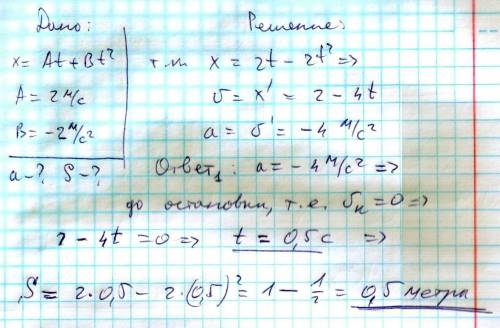 Дано:
x = At + Bt²
A = 2 м/с
B = -2 м/с²
a-? S-?
Решение:
т.к. x = 2t - 2t² =>
υ = x' = 2 - 4t
a = υ' = -4 м/с²
Ответ₁: a = -4 м/с² =>
до остановки, т.е. υк = 0 =>
2 - 4t = 0 => t = 0,5 c =>
S = 2·0,5 - 2·(0,5)² = 1 - 1/2 = 0,5 метра